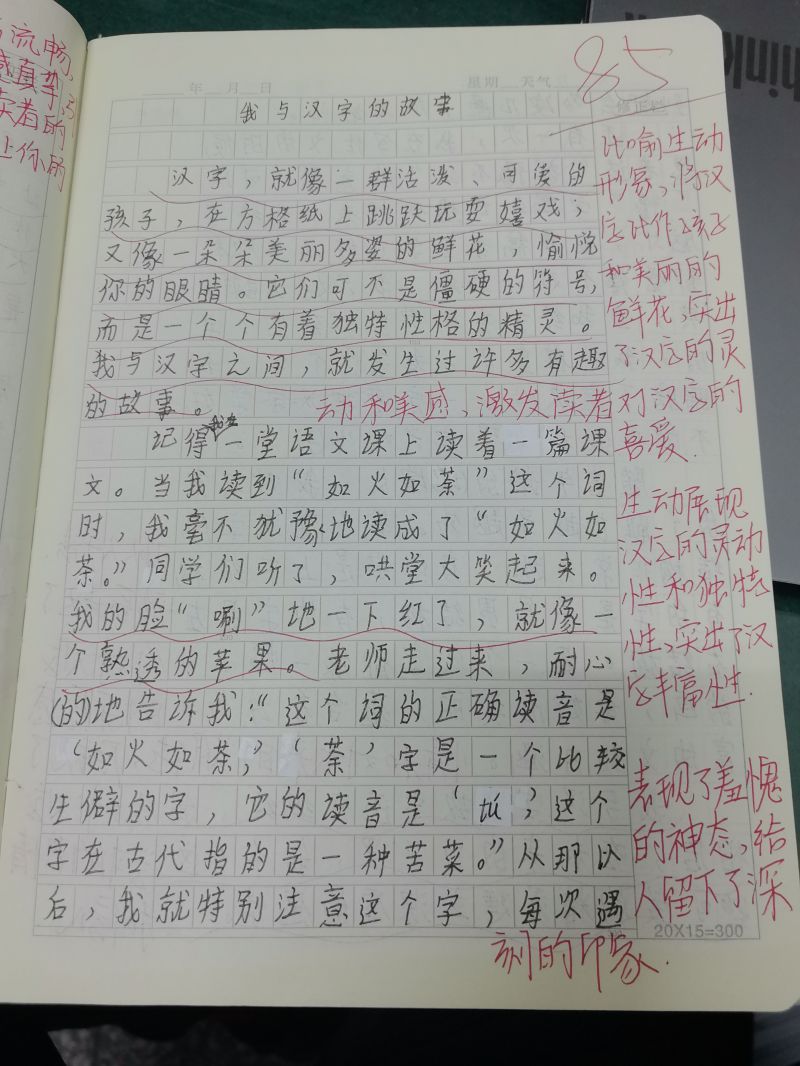 流畅,
感真挚,引
读者的
让你的
年 月 日
星期 天气
85
我与汉字的故事
修正栏
汉字,就像一群活泼、可爱的
孩子,在方格纸上跳跃玩耍嬉戏;
又像一朵朵美丽多姿的鲜花,愉悦
你的眼睛。它们可不是僵硬的符号,
而是一个个有着独特性格的精灵。
我与汉字之间,就发生过许多有趣
的故事。
记得我在一堂语文课上读着一篇课
文。当我读到“如火如荼”这个词
时,我毫不犹豫地读成了“如火如
茶。”同学们听了,哄堂大笑起来。
我的脸“唰”地一下红了,就像一
个熟透的苹果。老师走过来,耐心
(的)地告诉我:“这个词的正确读音是
‘如火如荼,’‘荼’字是一个比较
生僻的字,它的读音是‘tú,’这个
字在古代指的是一种苦菜。”从那以
后,我就特别注意这个字,每次遇
20X15=300
比喻生动
形象,将汉
字比作孩子
和美丽的
鲜花,突出
了汉字的灵
动和美感,激发读者对汉字的
喜爱.
生动展现
汉字的灵动
性和独特
性,突出了汉
字丰富性.
表现了羞愧
的神态,给
人留下了深
刻的印象.
think